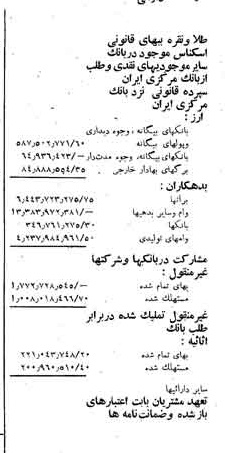 طلا و نقره ببهای قانونی
اسکناس موجود دربانک
سایرموجودیهای نقدی وطلب
ازبانک مرکزی ایران
سپرده قانونی نزد بانک
مرکزی ایران
ارز :
بانکهای بیگانه ، وجوه دیداری
وپولهای بیگانه ۵۸۷٫۵۰۲٫۷۷۱/۶۰
بانکهای بیگانه، وجوه مدت‌دار ۶۴٫۹۳۶٫۴۲۳/-
برگهای بهادار خارجی ۸۴٫۸۸۸٫۵۵۴/۳۵
بدهکاران :
براتها ۶٫۴۴۳٫۷۲۳٫۲۷۵/۷۵
وام وسایر بدهیها ۱۳٫۳۸۳٫۹۷۲٫۳۸۱/-
بانکها ۳۴۶٫۷۶۱٫۲۷۵/۳۰
وامهای تولیدی ۴٫۲۳۷٫۹۸۴٫۹۶۱/۵۰
مشارکت دربانکهاوشرکتها
غیرمنقول :
بهای تمام شده ۱٫۷۷۲٫۷۲۸٫۵۴۵/-
مستهلک شده ۱٫۰۰۸٫۰۱۸٫۴۶۶/۷۰
غیرمنقول تملیک شده دربرابر
طلب بانک
اثاثیه :
بهای تمام شده ۲۲۱٫۰۴۳٫۷۴۸/۲۰
مستهلک شده ۲۰۰٫۹۶۰٫۵۱۰/۴۰
سایر دارائیها
تعهد مشتریان بابت اعتبارهای
بازشده وضمانت‌نامه ها